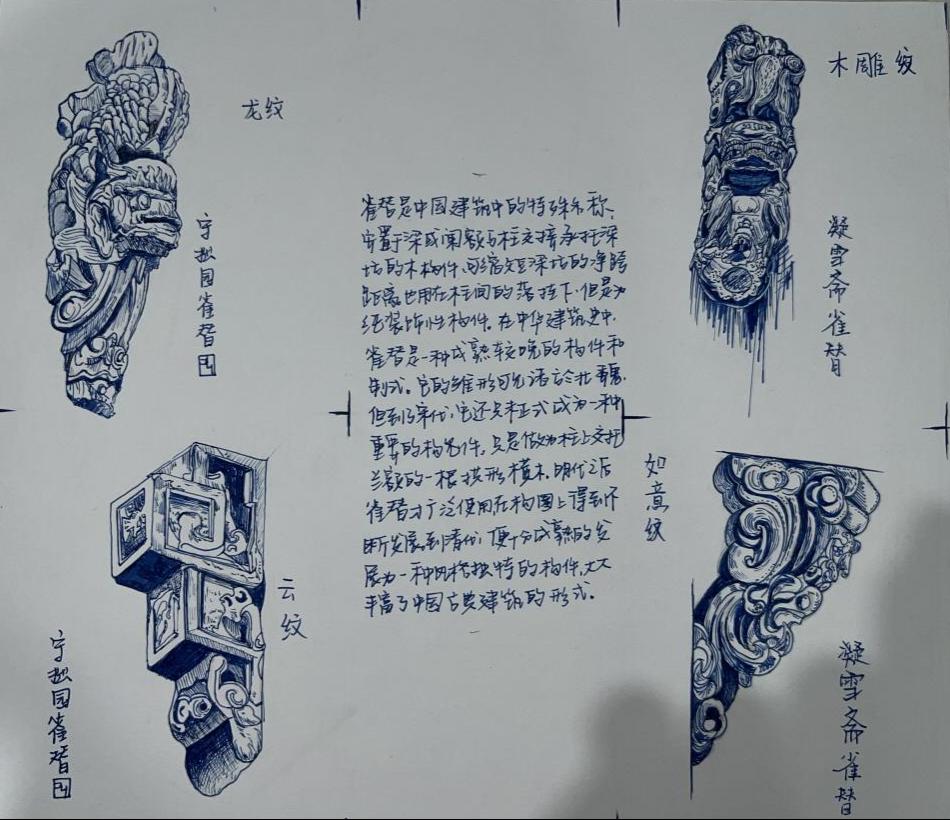 龙纹
守拙园雀替图
木雕纹
凝雪斋雀替
雀替是中国建筑中的特殊名称、
安置于梁或阑额与柱交接承托梁
枋的木构件、可缩短梁枋的净跨
距离也用在柱间的落挂下、但是为
纯装饰性构件。在中华建筑史中.
雀替是一种成熟较晚的构件和
制式。它的雏形可见诸于北魏.
但到了宋代,它还只正式成为一种
重要的构件。只是做为柱上交托
兰额的一根拱形横木。明代之后
雀替才广泛使用在构图上得到不
断发展到清代,便十分成熟的发
展为一种风格独特的构件,大大
丰富了中国古典建筑的形式。
云纹
守拙园雀替图
如意纹
凝雪斋雀替